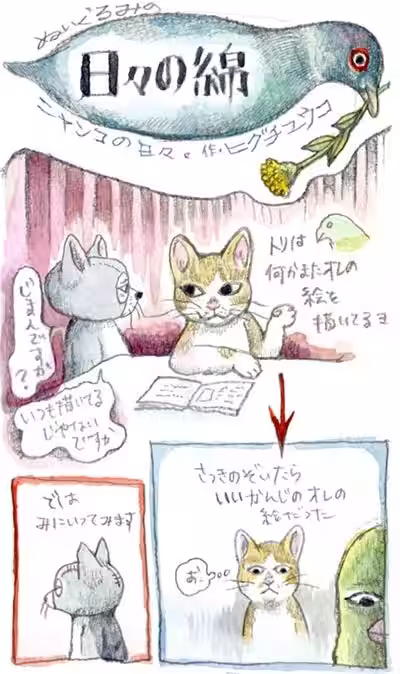 ぬいぐるみの
日々の綿
ニャンコの日々。作・ヒグチユウコ
トリは
何かまたオレの
絵を
描いてるヨ
じまんですか?
いつも描いてる
じゃない
ですか
さっきのぞいたら
いいかんじのオレの
絵だった
お…。。。
では
みにいってみます